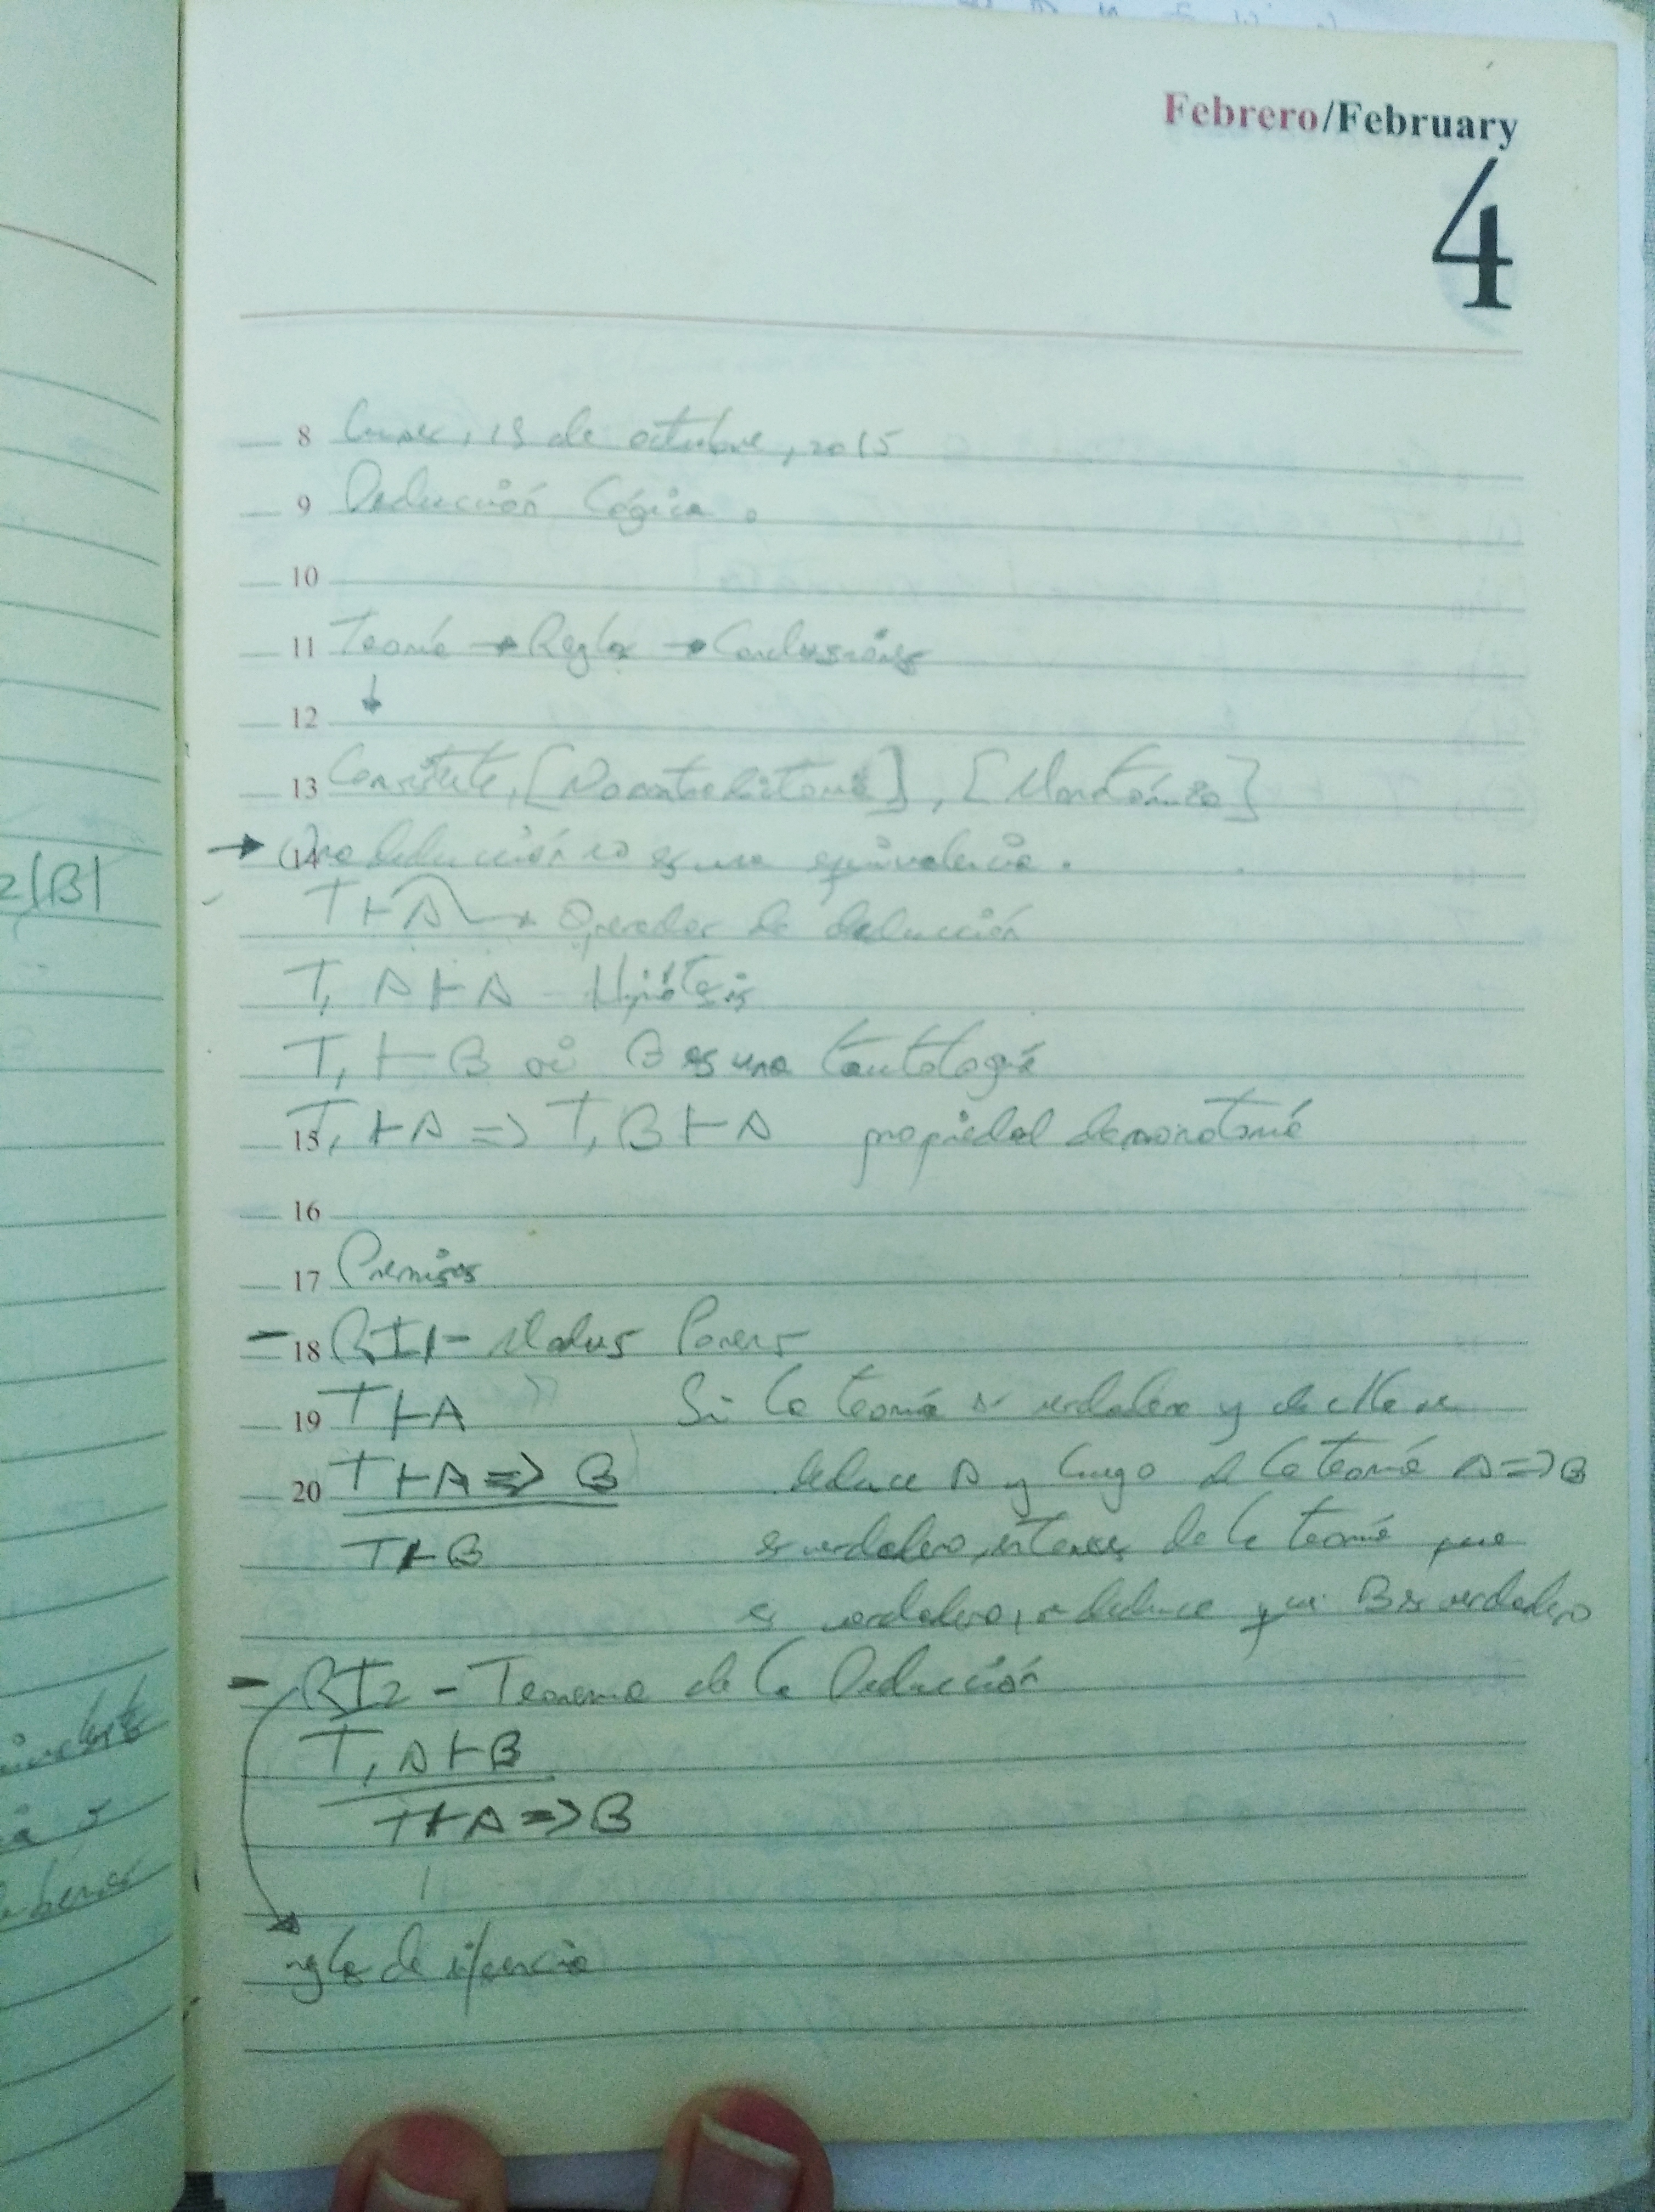 Febrero/February
4
8 Lunes, 19 de octubre, 2015
9 Deducción Lógica.
10
11 Teoría → Reglas → Conclusiones
↓
12
13 Consistente, [No contradictoria], [Monotónica]
→ 14 Una deducción no es una equivalencia.
T ⊢ A → Operador de deducción
T, A ⊢ A - Hipótesis
T, ⊢ B si B es una tautología
15 T, ⊢ A => T, B ⊢ A propiedad de monotonía
16
17 Premisas
- 18 RI1 - Modus Ponens
19 T ⊢ A Si la teoría es verdadera y de ella se
20 T ⊢ A => B deduce A y luego de la teoría A => B
T ⊢ B es verdadero, entonces de la teoría que
es verdadera, se deduce que B es verdadero
- RI2 - Teorema de la Deducción
T, A ⊢ B
T ⊢ A => B
regla de inferencia
2(B)